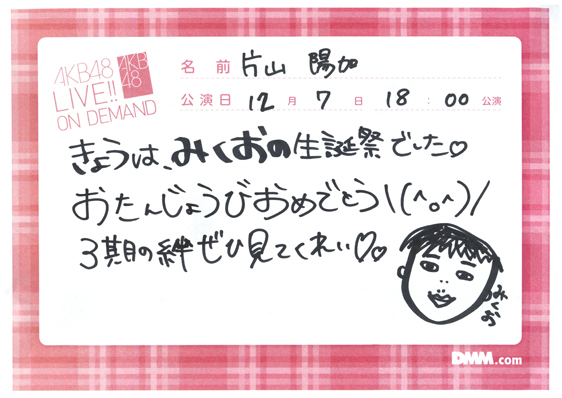 AKB48
LIVE!!
ON DEMAND
AKB
48
名前 片山 陽加
公演日 12月7日 18:00公演
きょうは、みくおの生誕祭でした♡
おたんじょうびおめでとう\(^o^)/
3期の絆ぜひ見てくれぃ♡♡
みくお
DMM.com